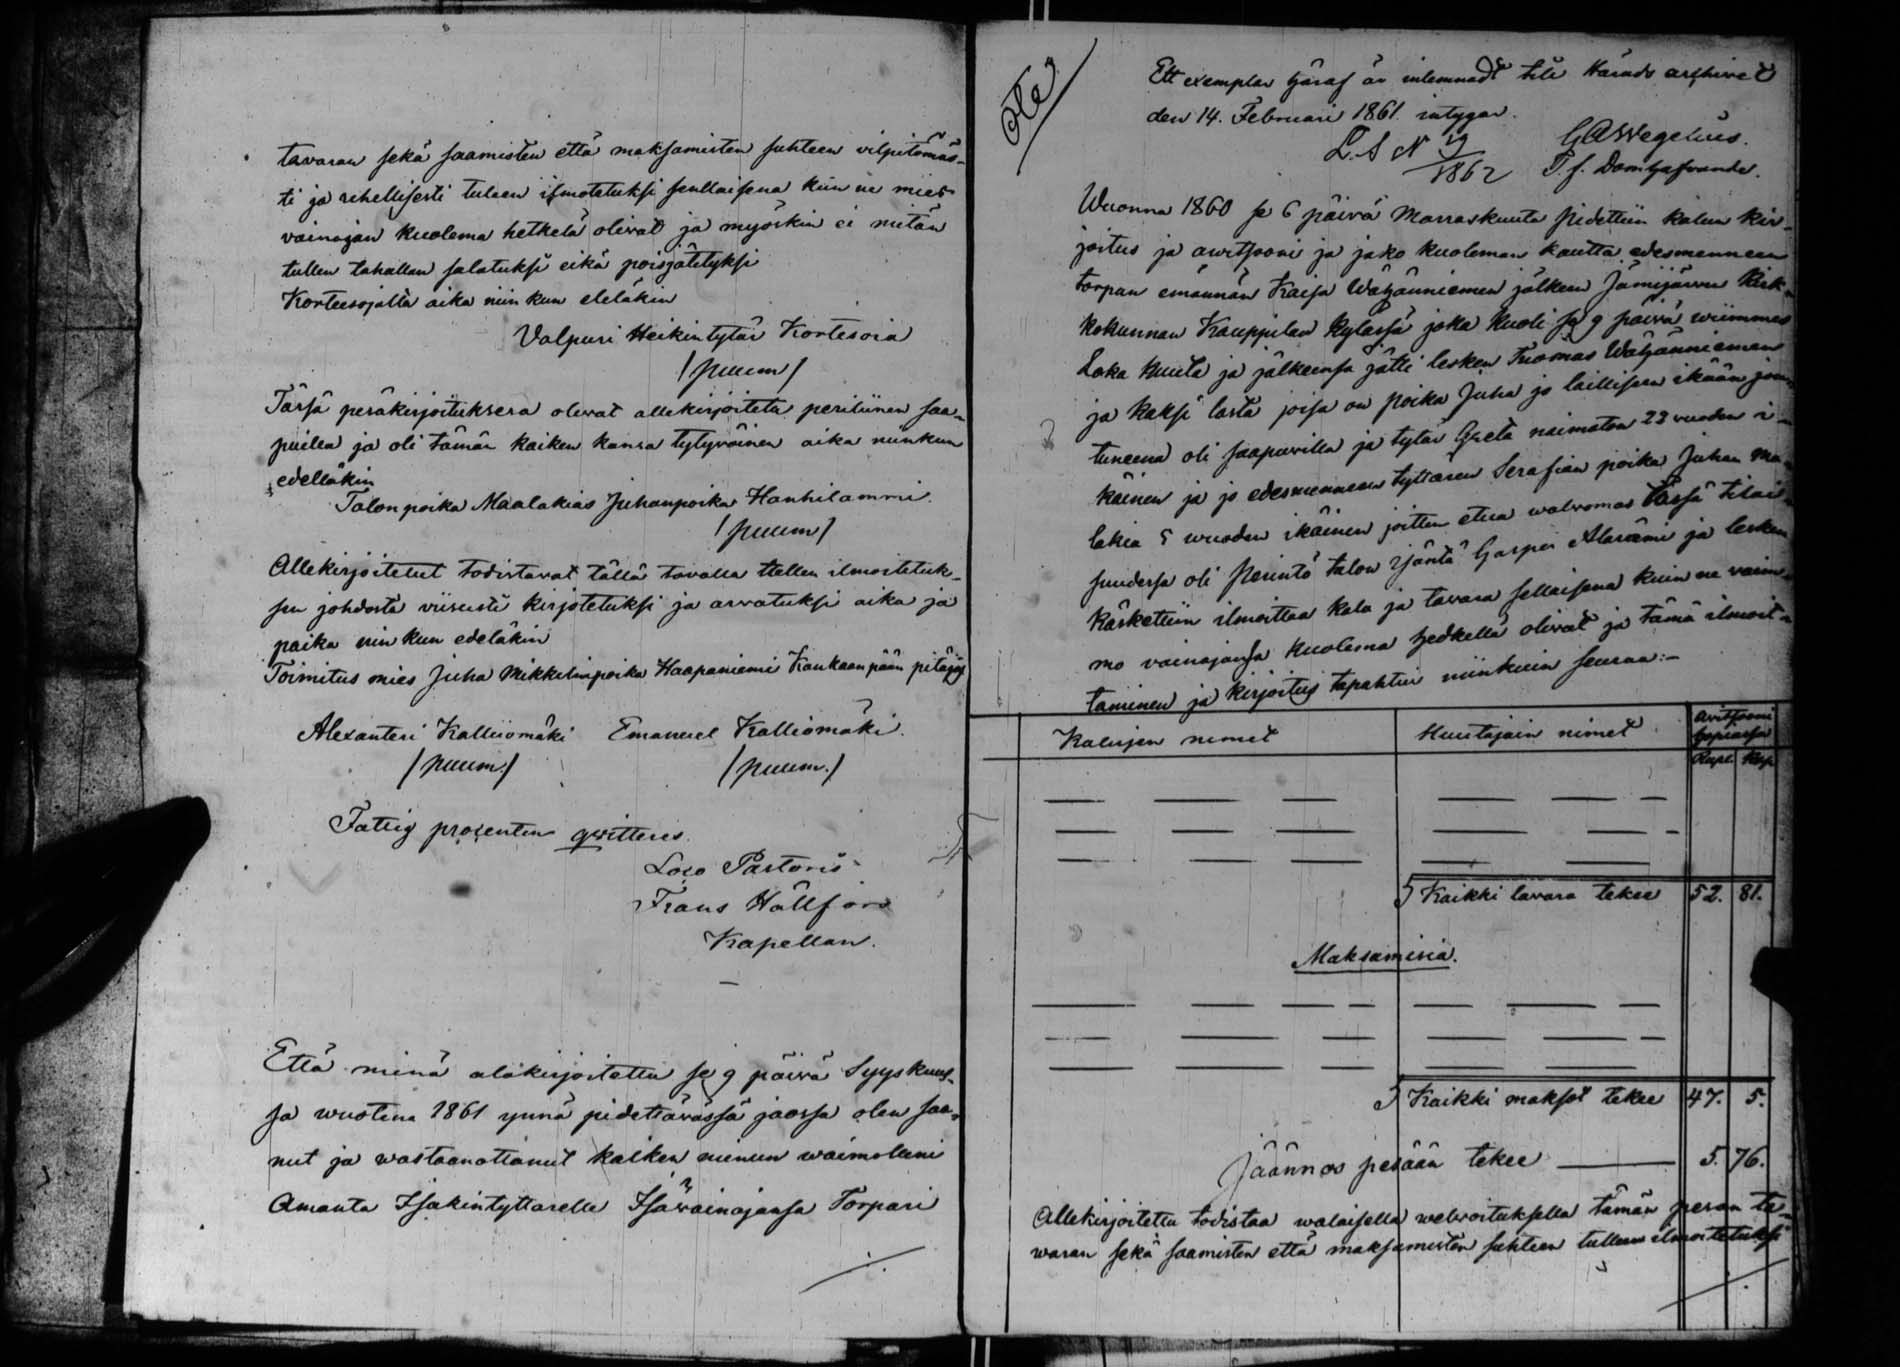 tavaran sekä saamisten että maksamisten suhteen vilpitömäs-
ti ja rehellisesti tuleen ilmotetuksi senllaisena kuin ne mies-
vainajan kuolema hetkelä olivat ja myöskin ei mitän
tullen tahallan salatuksi eikä poisjätetyksi
Korteesojalla aika niin kun eleläkin
Valpuri Heikintytär Kortesoia
/puum/
Tärsä peräkirjoituksesa olevat allekirjoiteta perilinen saa-
puilla ja oli tämän kaiken kansa tytyväinen aika niinkun
edelläkin
Talonpoika Maalakias Juhanpoika Hanhilammi.
/puum/
Allekirjoitetut todistavat tällä tavalla tullen ilmoitetuk-
sen johdosta viisusti kirjotetuksi ja arvatuksi aika ja
paika nin kun edeläkin
Toimitus mies Juha Mikkelinpoika Haapaniemi Kankaanpään pitäjäs
Alexanteri Kalliomäki Emanuel Kalliomäki.
/puum./ /puum./
Fattig procenten qvitteres.
Loco Pastoris
Frans Hällfors
Kapellan.
Että minä alakirjoitettu se 9 päivä Syyskuus-
sa wuotena 1861 ynnä pidettävässä jaossa olen saa-
nut ja wastaanottanut kaiken minun waimolleni
Amanta Isakintyttarelle Isävainajansa Torpari
Ett exemplar häraf är inlemnadt till Härads arkivet
den 14. Februari 1861. intygar.
L.S N 9/1862 GAWegelius.
T. f. Domhafvande.
Wuonna 1860 se 6 päivä Marraskuuta pidettiin kalun kir-
joitus ja awitsooni ja jako kuoleman kautta edesmenneen
torpan emännän Kaisa Wähänniemen jälken Jämijärven Kirk-
kokunnan Kauppilan kylässä joka kuoli se 9 päivä wiimmes
Loka kuuta ja jälkeensä jätti lesken Tuomas Wähänniemen
ja kaksi lasta joisa on poika Juha jo laillisen ikään jou-
tuneena oli saapuvilla ja tytär Greta naimaton 23 vuoden i-
käinen ja jo edesmenneen tyttären Serafian poika Juhan Ma-
lakia 5 wuoden ikäinen joitten etua walvomas Tässä tilai-
suudersa oli Perintö talon isäntä Gasper Alasämi ja lesken
käskettiin ilmoittaa kala ja tavara sellaisena kuin ne vaim-
mo vainajansa kuolema hedkellä olivat ja tämä ilmoit-
taminen ja kirjoitus tapahtui niinkuin seuraa:-
Kalujen nimet Huutajain nimet Avitsooni
Rupl. Kop.
Kaikki tavara tekee 52. 81.
Maksamisia.
Kaikki maksot tekee 47. 5.
Jäännös pesään tekee 5. 76.
Allekirjoitettu todistaa walaisella welvoituksella tämän pesan ta-
waran sekä saamisten että maksamisten suhteen tulleen ilmoitetuksi